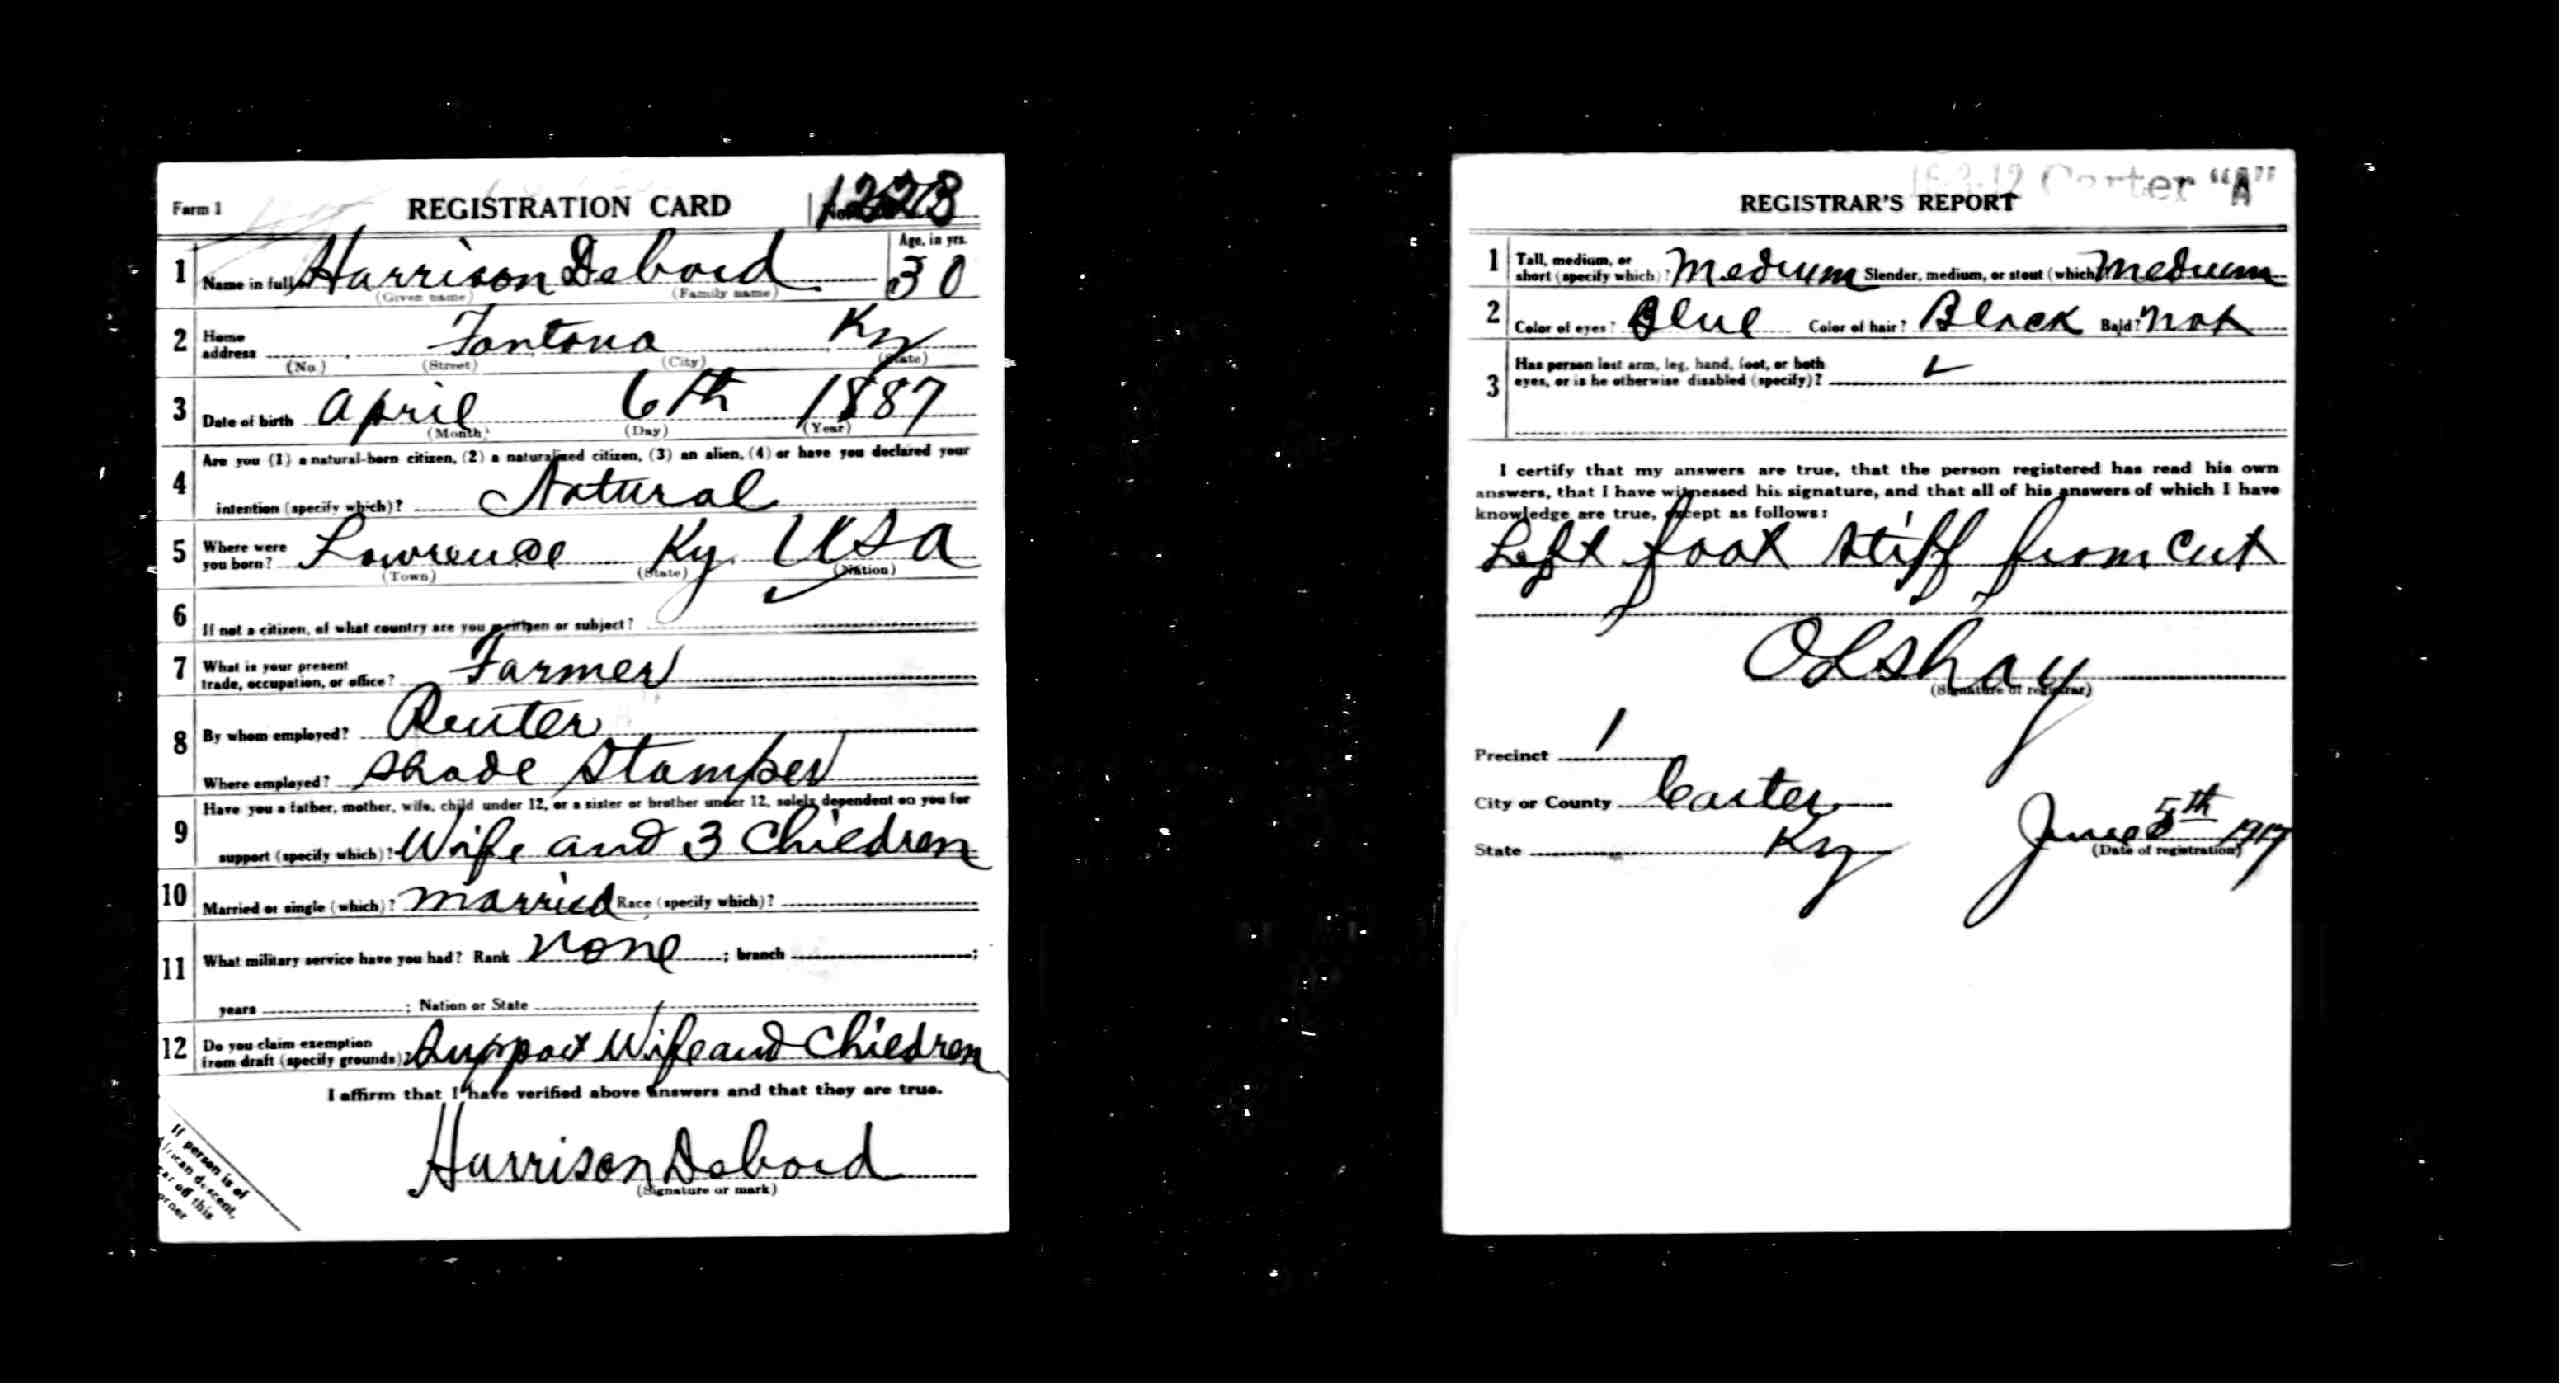 Form 1 REGISTRATION CARD No. 1223
1 Name in full Harrison Debord Age, in yrs. 30
(Given name) (Family name)
2 Home address Fontona Ky
(No.) (Street) (City) (State)
3 Date of birth April 6th 1887
(Month) (Day) (Year)
4 Are you (1) a natural-born citizen, (2) a naturalized citizen, (3) an alien, (4) or have you declared your
intention (specify which)? Natural
5 Where were you born? Lawrence Ky. USA
(Town) (State) (Nation)
6 If not a citizen, of what country are you a citizen or subject?
7 What is your present trade, occupation, or office? Farmer
8 By whom employed? Renter
Where employed? Shade Stamper
9 Have you a father, mother, wife, child under 12, or a sister or brother under 12, solely dependent on you for
support (specify which)? Wife and 3 Children
10 Married or single (which)? Married Race (specify which)?
11 What military service have you had? Rank None ; branch ;
years ; Nation or State
12 Do you claim exemption from draft (specify grounds)? Support Wife and Children
I affirm that I have verified above answers and that they are true.
Harrison Debord
(Signature or mark)
If person is of
African descent,
tear off this
corner
Carter "A"
REGISTRAR'S REPORT
1 Tall, medium, or short (specify which)? Medium Slender, medium, or stout (which)? Medium
2 Color of eyes? Blue Color of hair? Black Bald? Not
3 Has person lost arm, leg, hand, foot, or both
eyes, or is he otherwise disabled (specify)?
I certify that my answers are true, that the person registered has read his own
answers, that I have witnessed his signature, and that all of his answers of which I have
knowledge are true, except as follows:
Left foot stiff from cut
OL Shay
(Signature of registrar)
Precinct 1
City or County Carter
State Ky June 5th 1917
(Date of registration)